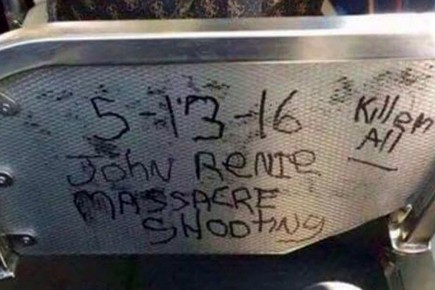 5-13-16
John RENIE
MASSACRE
SHOOtiNg
Kill em
All